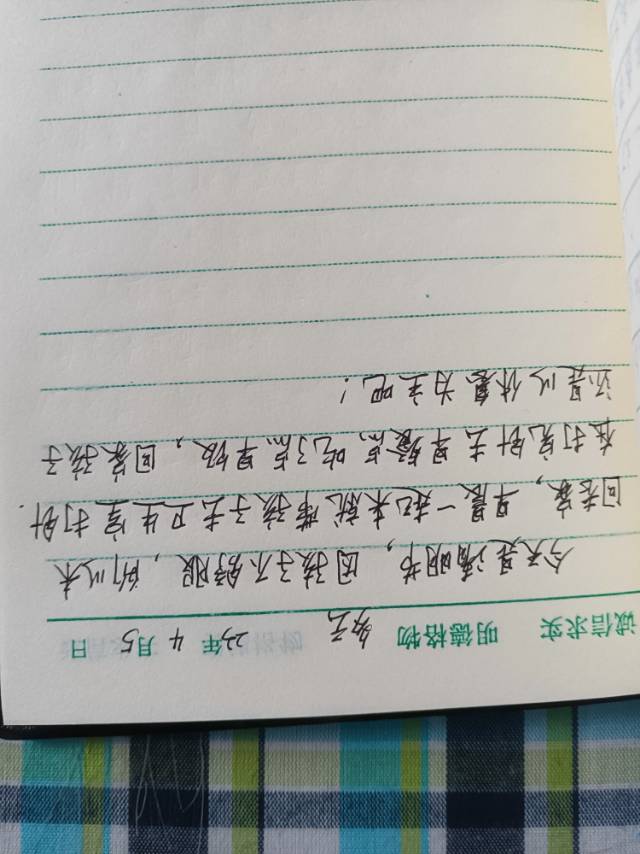 诚信求实 明德格物 多云 23年 4月5日
今天是清明节，因孩子不舒服，所以未
回老家，早晨一起来就带孩子去卫生室打针.
在打完针去早餐点吃了点早饭，回家孩子
还是以休息为主吧！